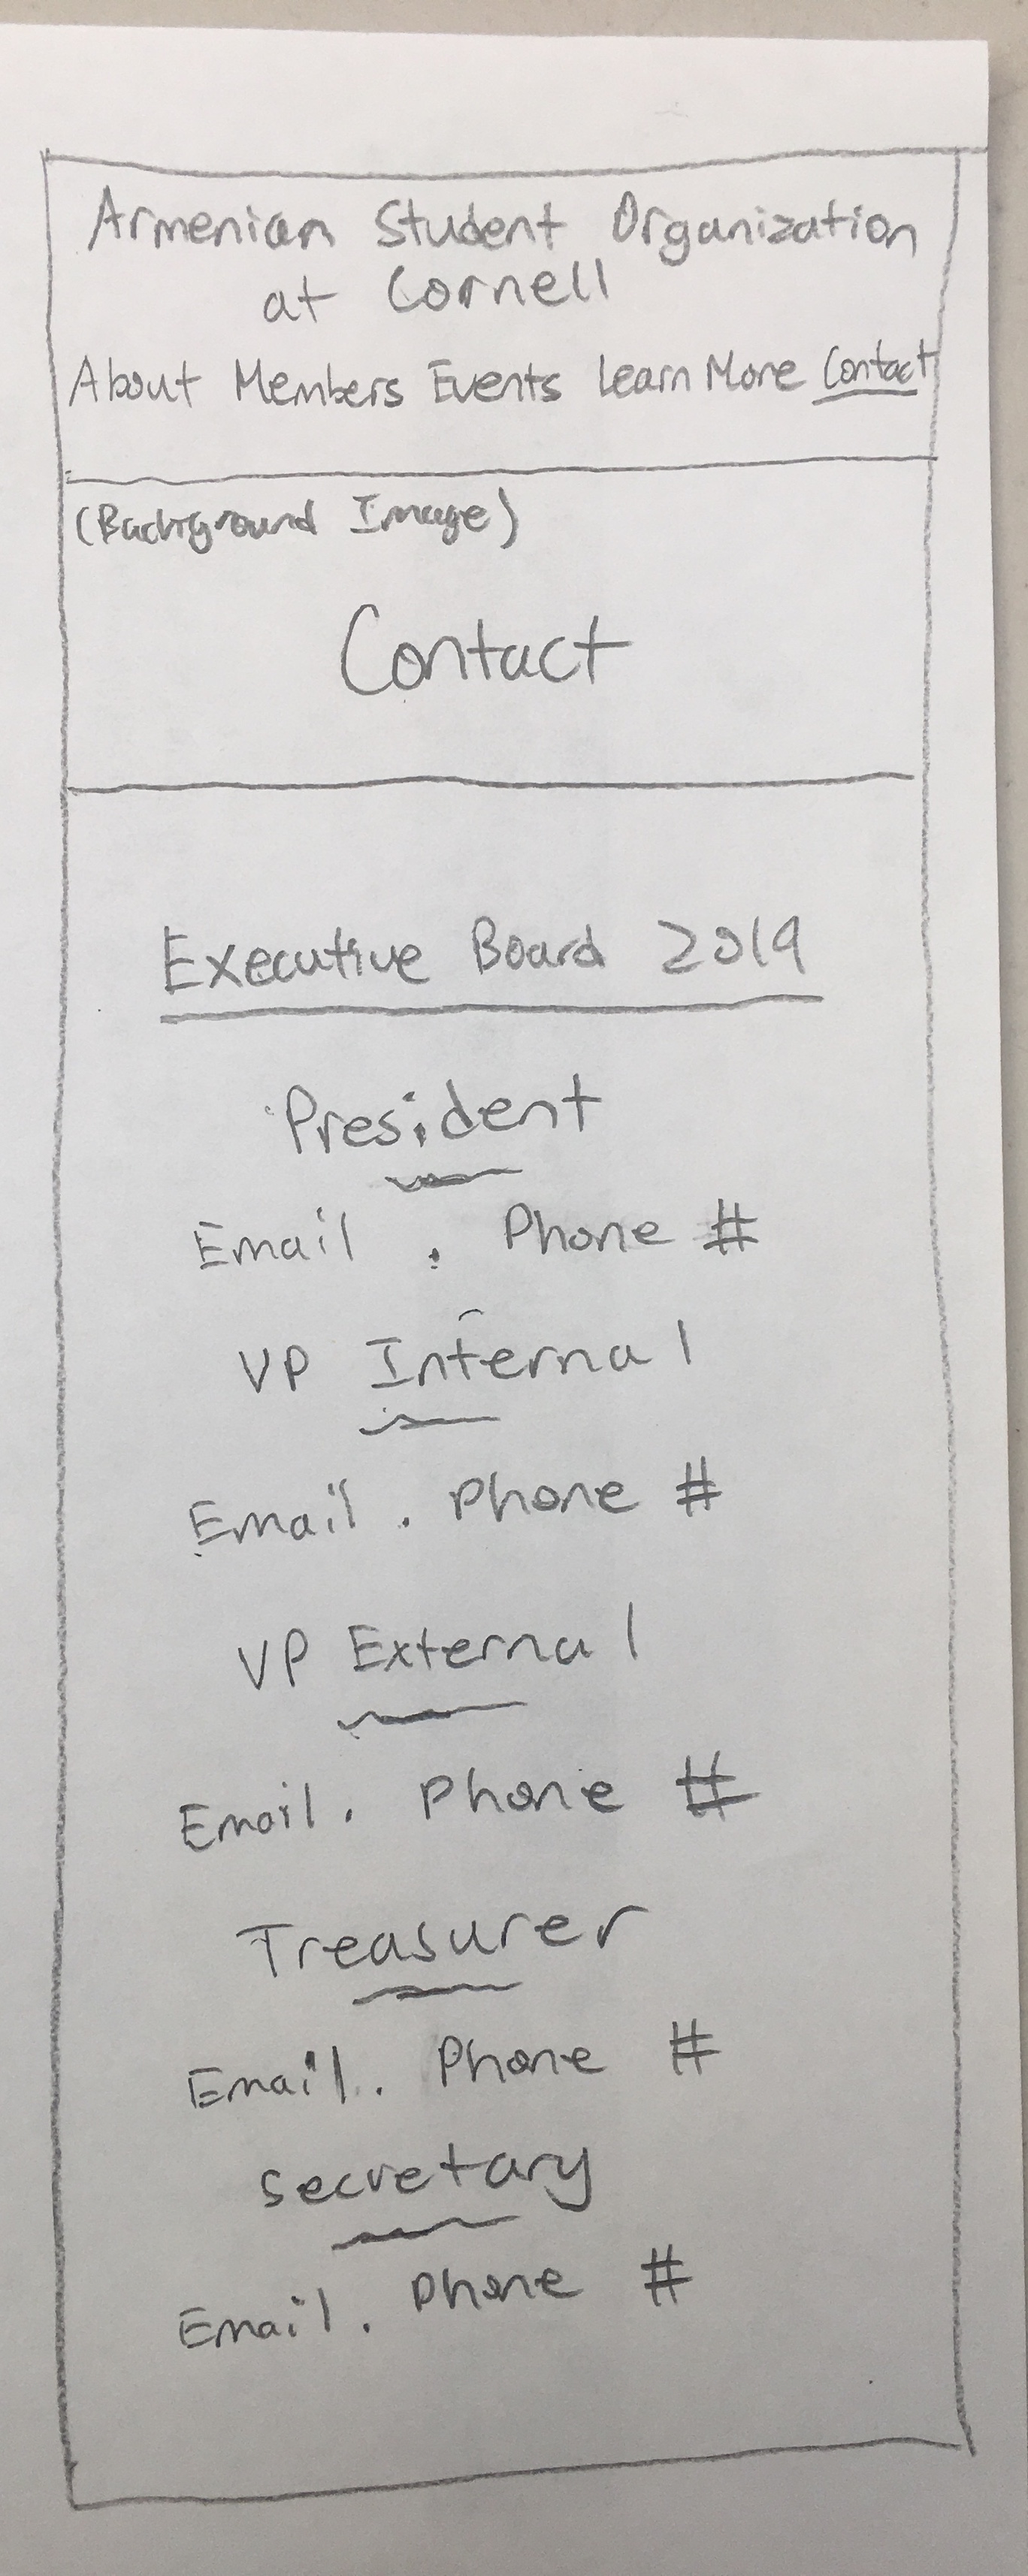 Armenian Student Organization
at Cornell
About Members Events Learn More Contact
(Background Image)
Contact
Executive Board 2019
President
Email . Phone #
VP Internal
Email . Phone #
VP External
Email . Phone #
Treasurer
Email . Phone #
Secretary
Email . Phone #